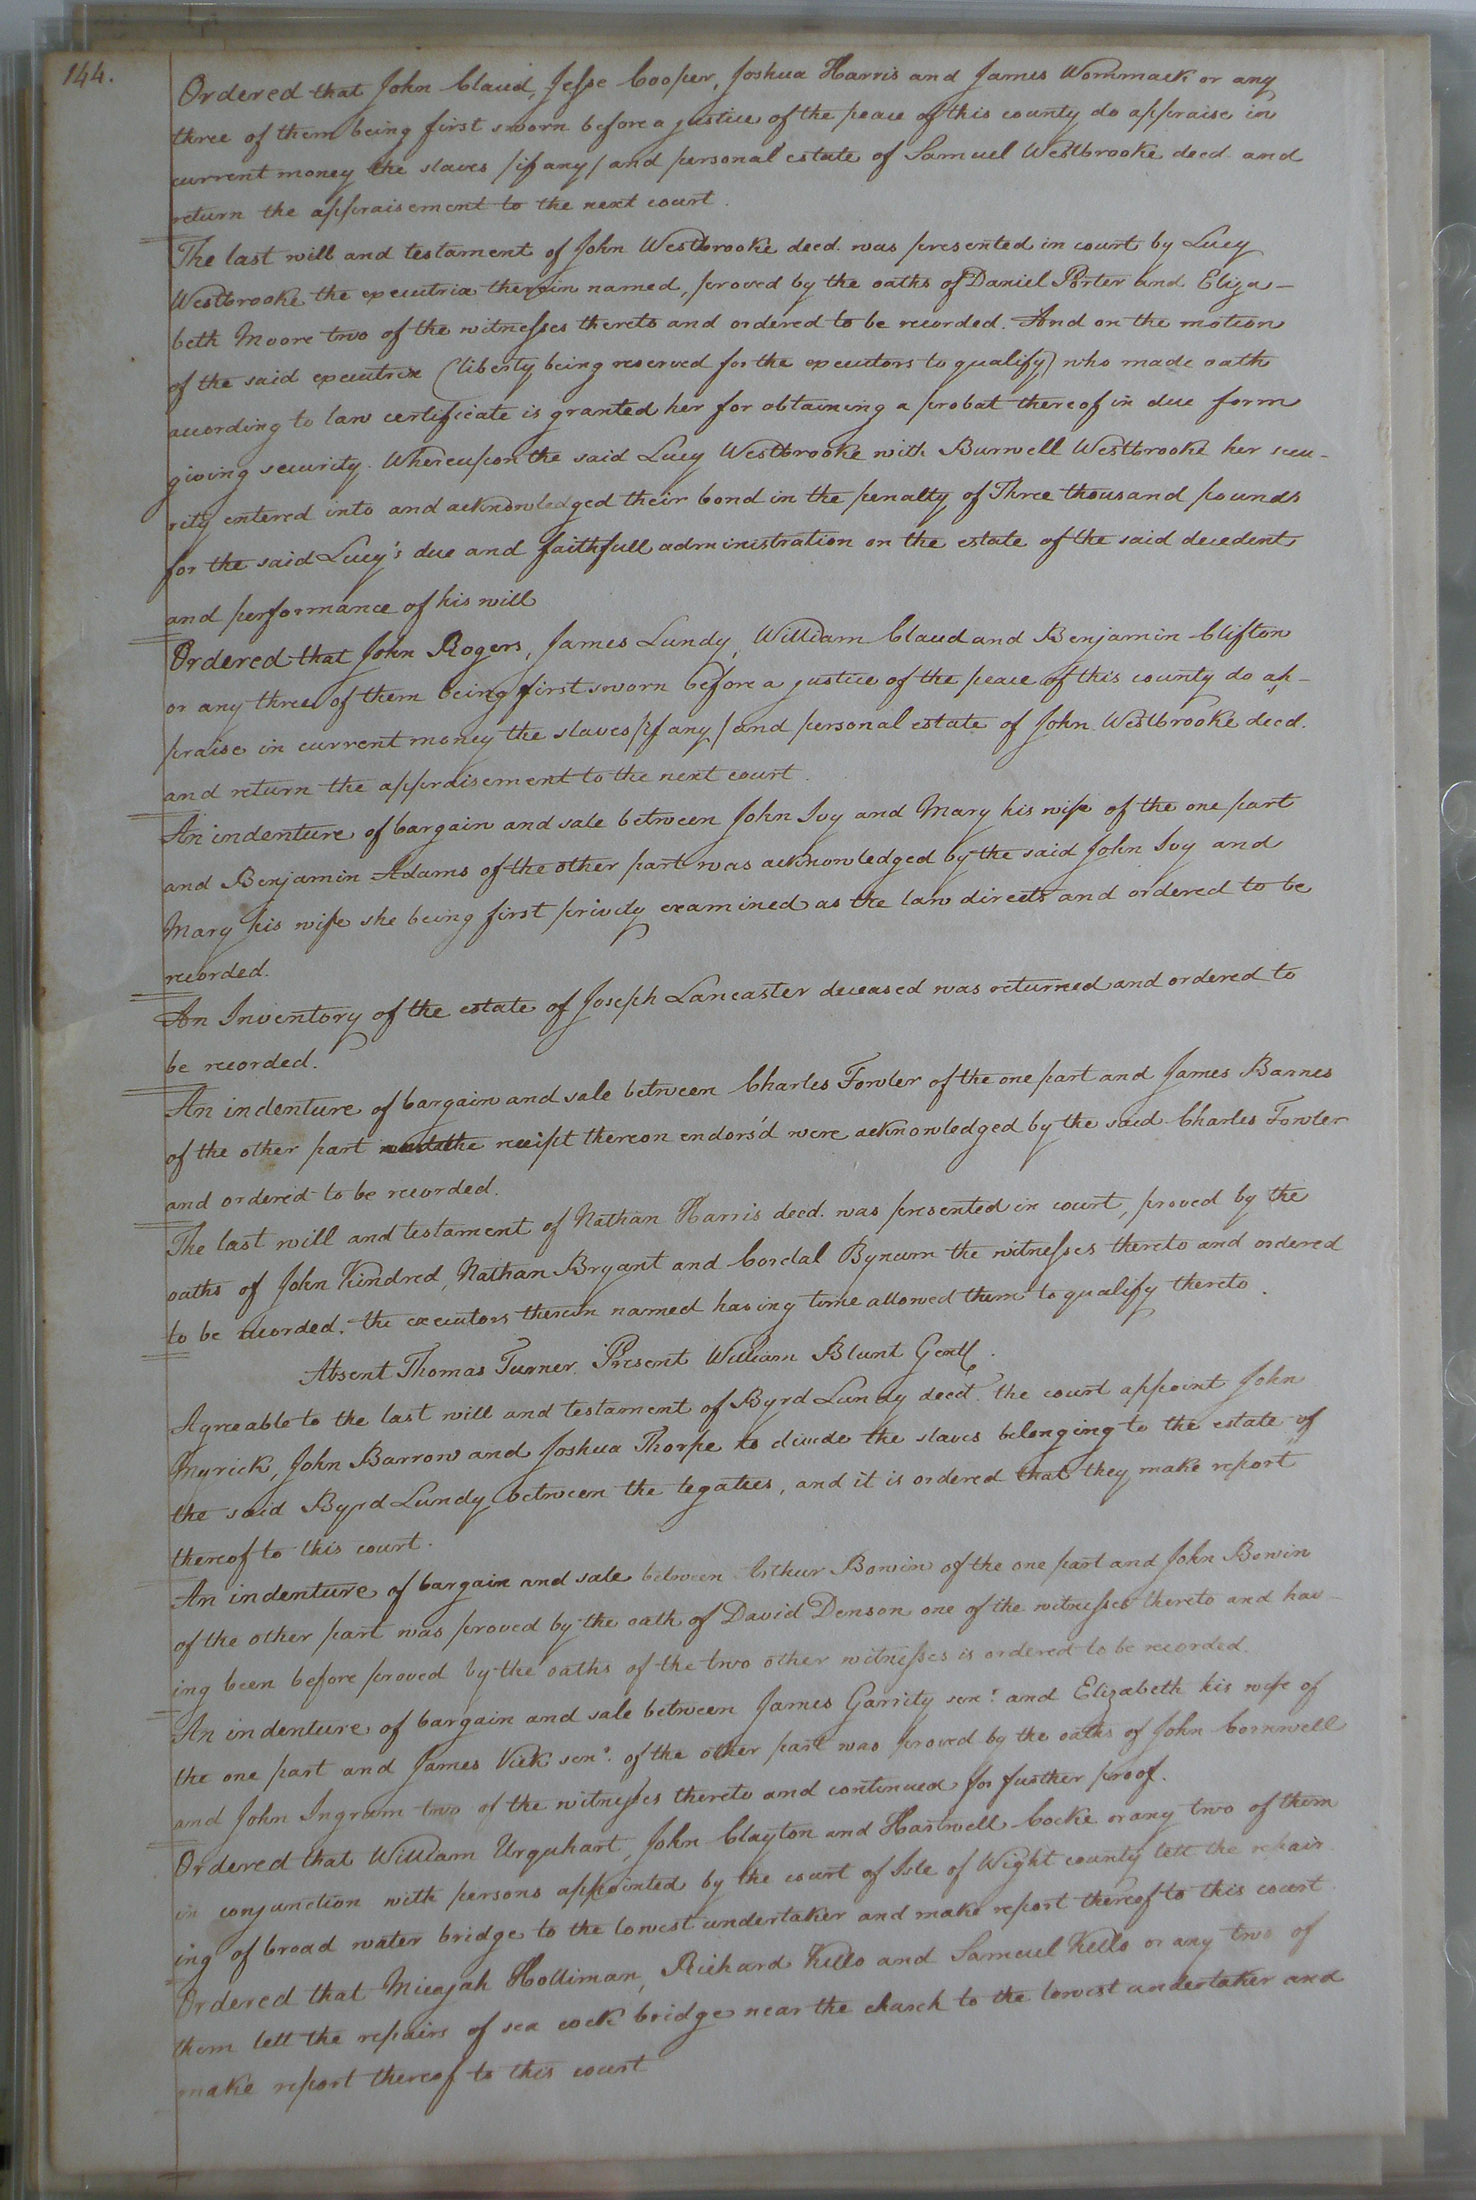 144.
Ordered that John Claud, Jesse Cooper, Joshua Harris and James Wommack or any
three of them being first sworn before a justice of the peace of this county do appraise in
current money the slaves /if any/ and personal estate of Samuel Westbrooke decd. and
return the appraisement to the next court.
The last will and testament of John Westbrooke decd. was presented in court by Lucy
Westbrooke the executrix therein named, proved by the oaths of Daniel Porter and Eliza-
beth Moore two of the witnesses thereto and ordered to be recorded. And on the motion
of the said executrix (liberty being reserved for the executors to qualify) who made oath
according to law certificate is granted her for obtaining a probat thereof in due form
giving security. Whereupon the said Lucy Westbrooke with Burwell Westbrooke her secu-
rity entered into and acknowledged their bond in the penalty of Three thousand pounds
for the said Lucy's due and faithfull administration on the estate of the said decedent
and performance of his will
Ordered that John Rogers, James Lundy, William Claud and Benjamin Clifton
or any three of them being first sworn before a justice of the peace of this county do ap-
praise in current money the slaves /if any/ and personal estate of John Westbrooke decd.
and return the appraisement to the next court.
An indenture of bargain and sale between John Ivy and Mary his wife of the one part
and Benjamin Adams of the other part was acknowledged by the said John Ivy and
Mary his wife she being first privily examined as the law directs and ordered to be
recorded.
An Inventory of the estate of Joseph Lancaster deceased was returned and ordered to
be recorded.
An indenture of bargain and sale between Charles Fowler of the one part and James Barnes
of the other part and the receipt thereon endors'd were acknowledged by the said Charles Fowler
and ordered to be recorded.
The last will and testament of Nathan Harris decd. was presented in court, proved by the
oaths of John Kindred, Nathan Bryant and Cordal Bynum the witnesses thereto and ordered
to be recorded. the executors therein named having time allowed them to qualify thereto.
Absent Thomas Turner. Present William Blunt Gentl.
Agreable to the last will and testament of Byrd Lundy decd. the court appoint John
Myrick, John Barrow and Joshua Thorpe to divide the slaves belonging to the estate of
the said Byrd Lundy between the legatees, and it is ordered that they make report
thereof to this court.
An indenture of bargain and sale between Arthur Bowin of the one part and John Bowin
of the other part was proved by the oath of David Denson one of the witnesses thereto and hav-
ing been before proved by the oaths of the two other witnesses is ordered to be recorded.
An indenture of bargain and sale between James Garrity senr. and Elizabeth his wife of
the one part and James Vick senr. of the other part was proved by the oaths of John Cornwell
and John Ingram two of the witnesses thereto and continued for further proof.
Ordered that William Urquhart, John Clayton and Hartwell Cocke or any two of them
in conjunction with persons appointed by the court of Isle of Wight county lett the repair
ing of broad water bridge to the lowest undertaker and make report thereof to this court
Ordered that Micajah Holliman, Richard Kello and Samuel Kello or any two of
them lett the repairs of sea cock bridge near the church to the lowest undertaker and
make report thereof to this court